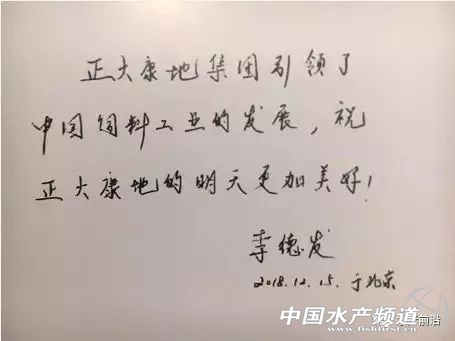 正大康地集团引领了
中国饲料工业的发展，祝
正大康地的明天更加美好！
李德发
2018.12.15.于北京
中国水产频道
www.fishfirst.cn
前沿